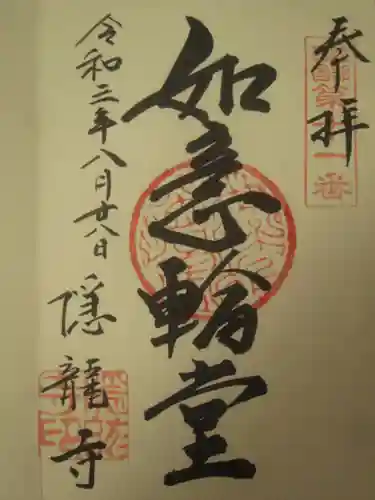 奉拝
如意輪堂
令和三年八月廿八日
隠龍寺